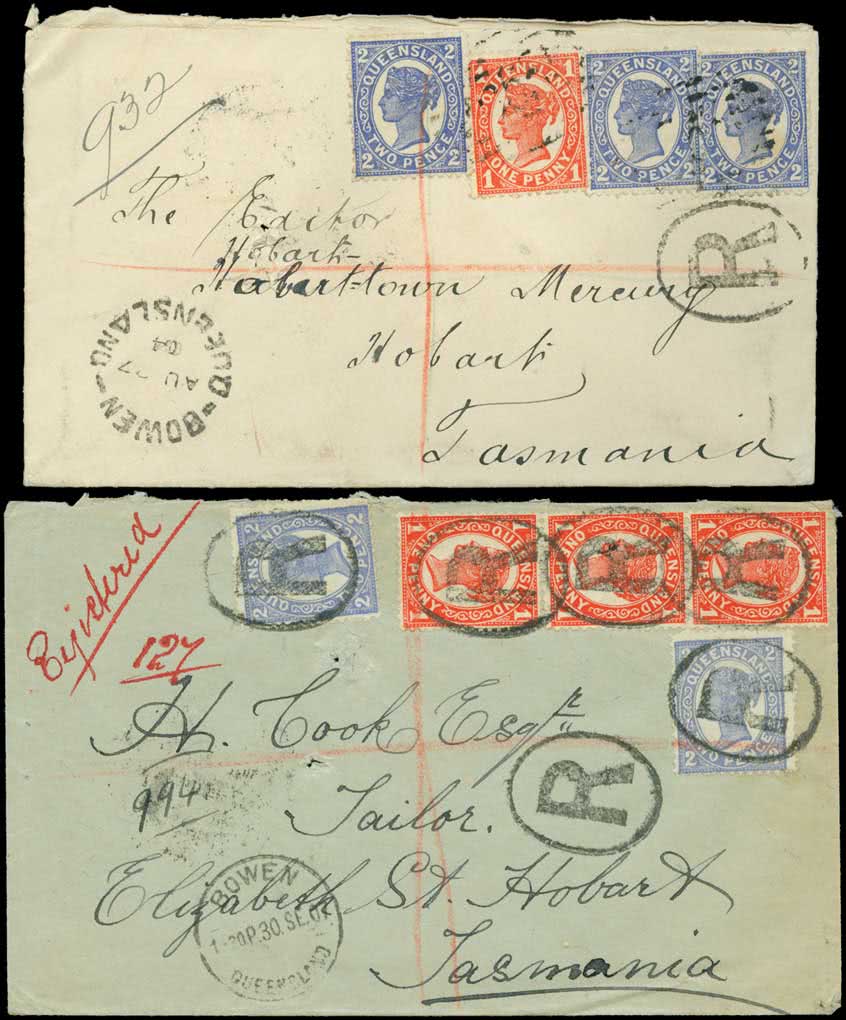 932
2 QUEENSLAND 2
2 TWO PENCE 2
1 QUEENSLAND 1
1 ONE PENNY 1
2 QUEENSLAND 2
2 TWO PENCE 2
2 QUEENSLAND 2
2 TWO PENCE 2
R
The Editor
Hobart
Hobarttown Mercury
Hobart
Tasmania
BOWEN
AU 27
04
QUEENSLAND
Registered
127
2 QUEENSLAND 2
2 TWO PENCE 2
R
1 QUEENSLAND 1
1 ONE PENNY 1
R
1 QUEENSLAND 1
1 ONE PENNY 1
R
1 QUEENSLAND 1
1 ONE PENNY 1
R
2 QUEENSLAND 2
2 TWO PENCE
R
H. Cook Esqr
R
994
Tailor.
Elizabeth St. Hobart
Tasmania
BOWEN
30.SE.07
QUEENSLAND